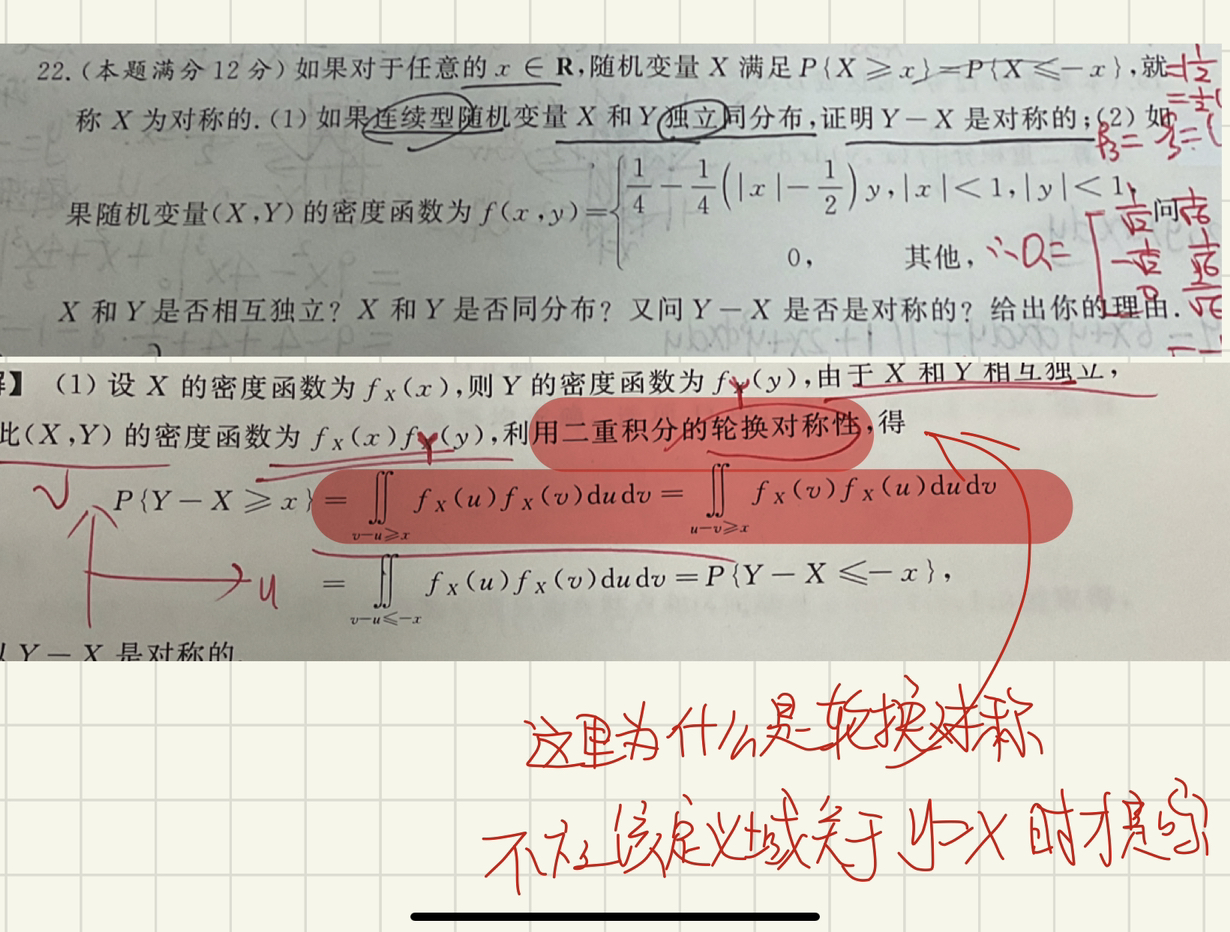 22.(本题满分12分)如果对于任意的 x ∈ R,随机变量 X 满足P{X ⩾ x}=P{X ⩽−x},就
称 X 为对称的.(1)如果连续型随机变量 X 和 Y 独立同分布,证明 Y−X 是对称的;(2)如
果随机变量(X,Y)的密度函数为 f(x,y)={1/4 − 1/4(|x|−1/2)y,|x|<1,|y|<1, 问
0, 其他,
∴Q=
X 和 Y 是否相互独立? X 和 Y 是否同分布? 又问 Y−X 是否是对称的? 给出你的理由.
】 (1) 设 X 的密度函数为 f_X(x),则 Y 的密度函数为 f_Y(y),由于 X 和 Y 相互独立,
此(X,Y) 的密度函数为 f_X(x)f_Y(y),利用二重积分的轮换对称性,得
√ P{Y−X ⩾ x}= ∬_{v−u⩾x} f_X(u)f_X(v)dudv = ∬_{u−v⩾x} f_X(v)f_X(u)dudv
u
= ∬_{v−u⩽−x} f_X(u)f_X(v)dudv = P{Y−X ⩽−x},
Y−X 是对称的.
这里为什么是轮换对称
不应该定义域关于 y=x 时才是的